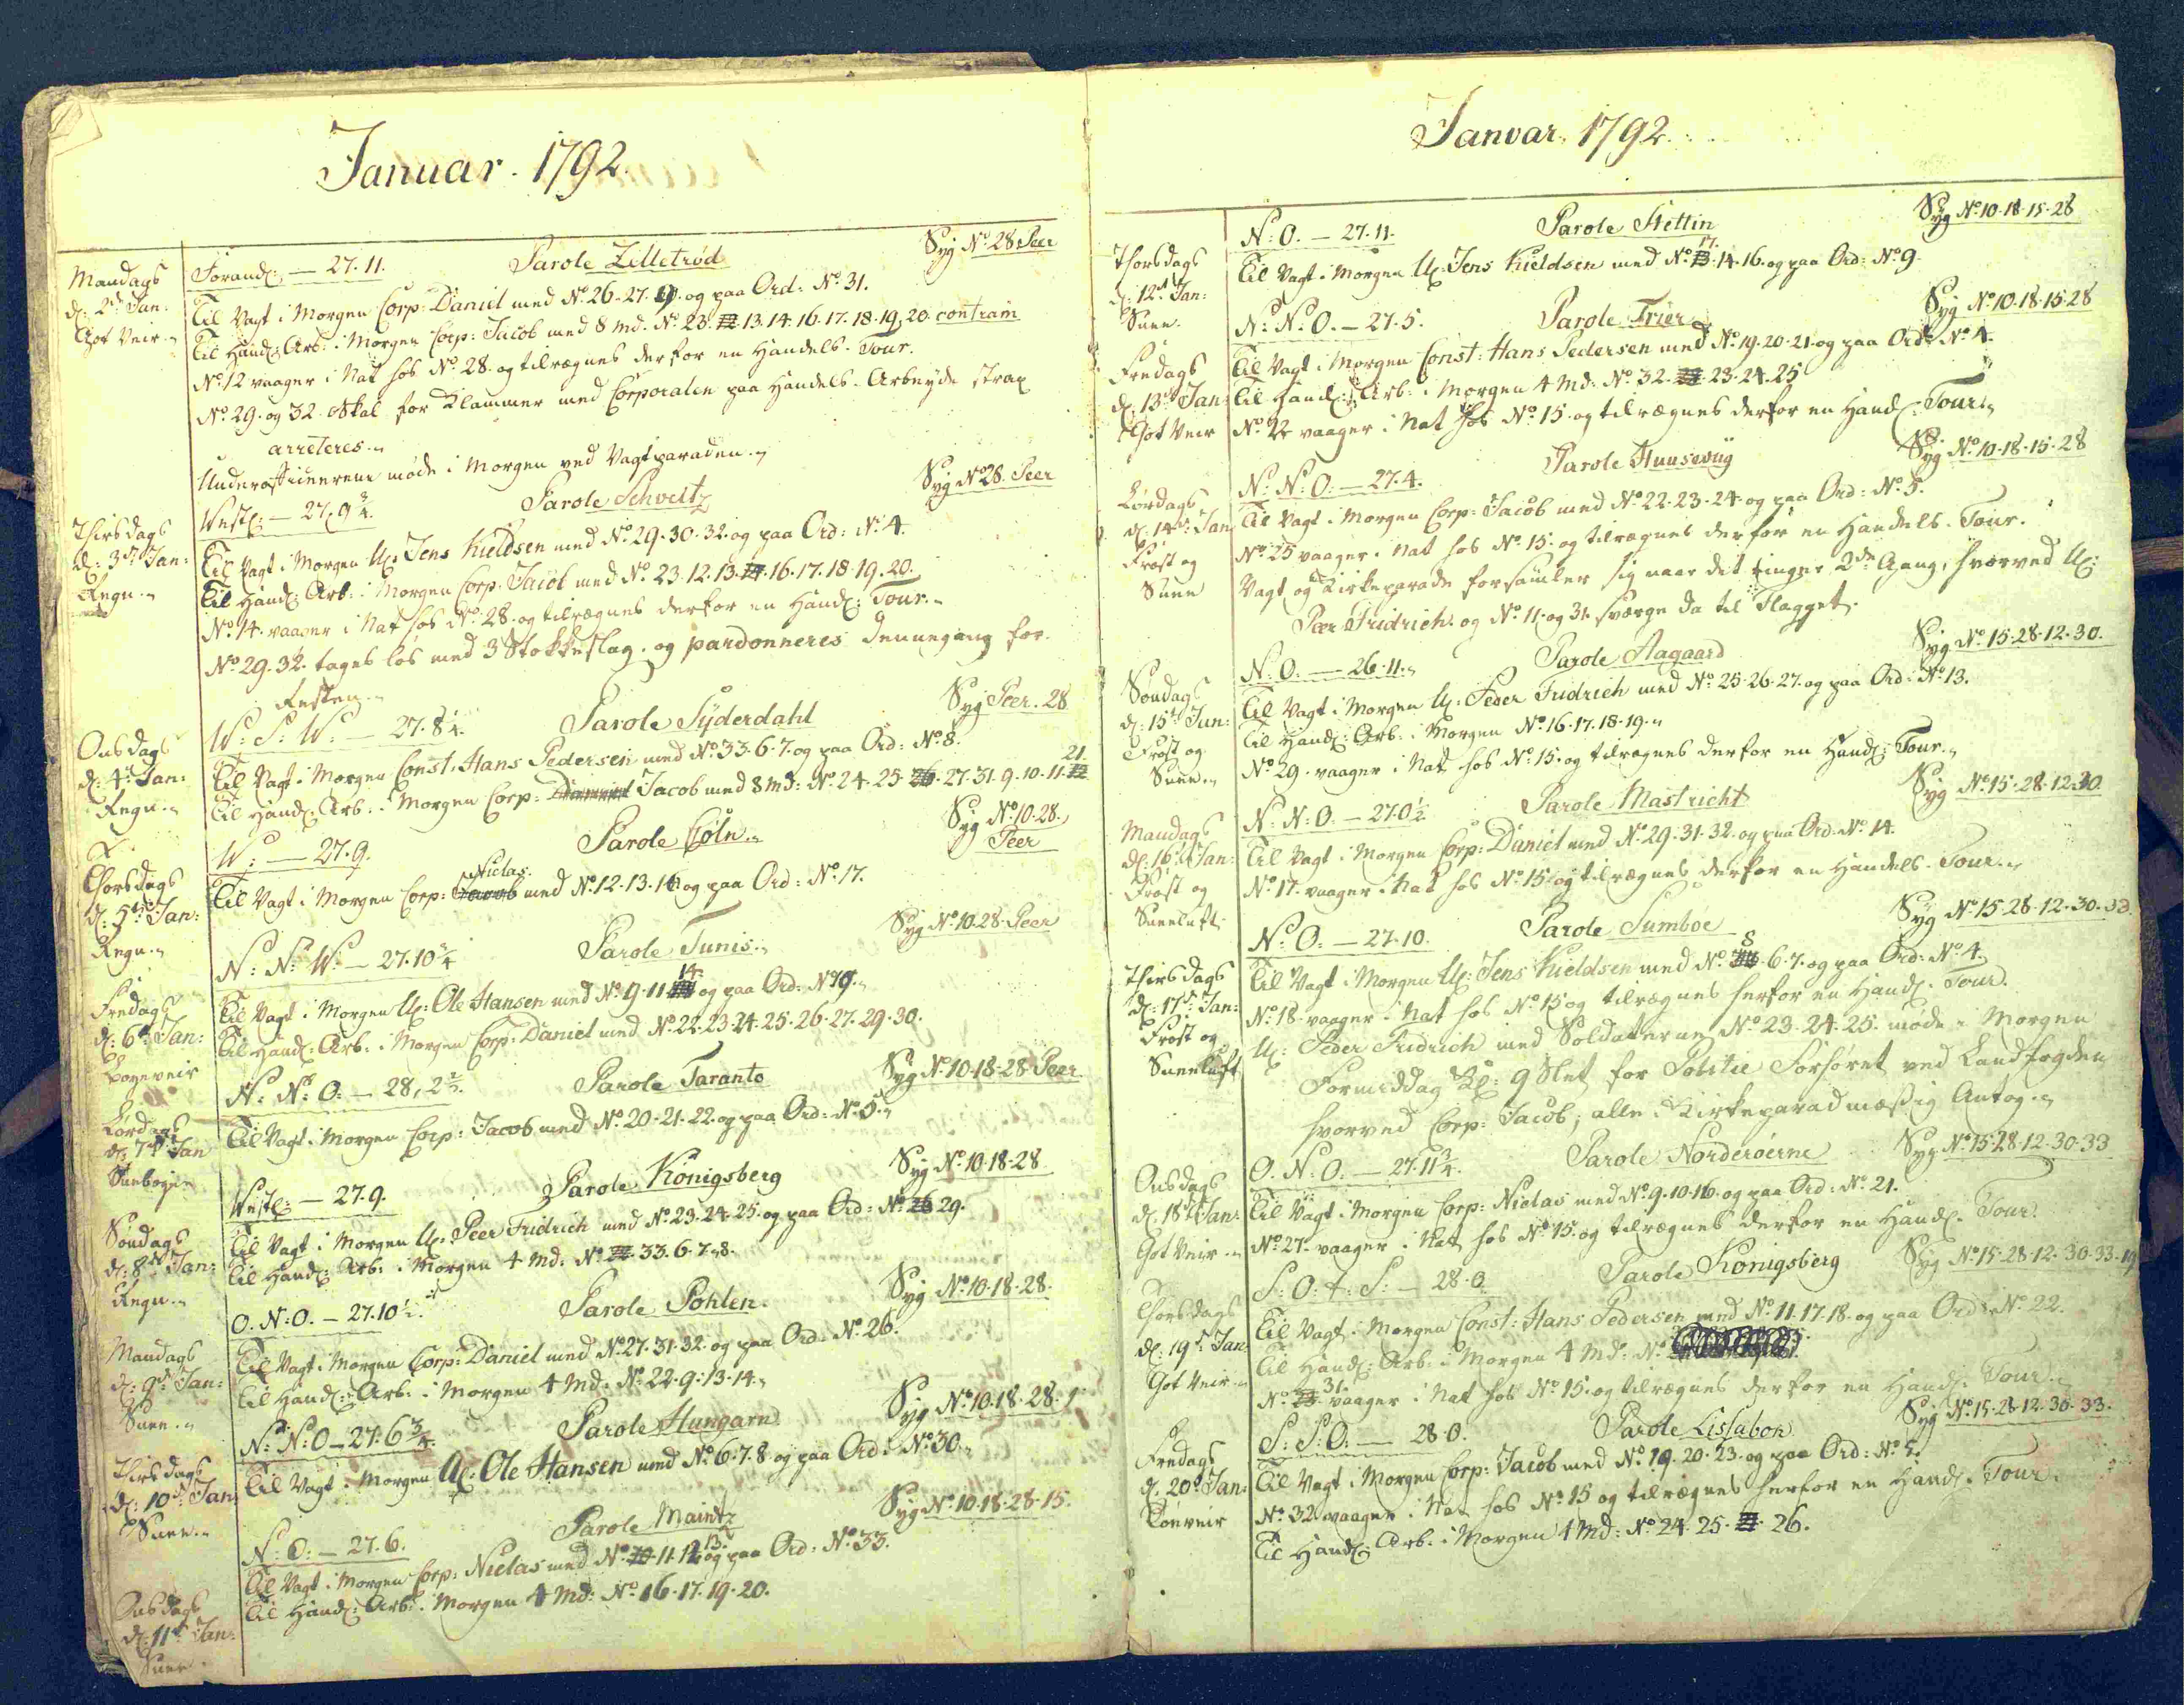 Januar. 1792.
Mandags
d: 2d Jan:
Got Veir.
Forandl: — 27.11. Parole Zelletrød Syg No 28 Peer
Til Vagt i Morgen Corp: Daniel med No 26-27. og paa Ord: No 31.
Til Handl: Arb: i Morgen Corp: Jacob med 8 Md. No 23. 13.14.16.17.18.19.20. contram
No 12 vaager i Nat hos No 28. og tilregnes derfor en Handels-Tour.
No 29. og 32. skal for Klammer med Corporalen paa Handels-Arbeyde strax
arreteres.
Underofficererne møde i Morgen ved Vagtparaden.
Thirsdags
d: 3d Jan:
Regn.
Vestl: — 27.9 3/4. Parole Schveitz Syg No 28. Peer
Til Vagt i Morgen U: Jens Kieldsen med No 29-30-32. og paa Ord: No 4.
Til Handl: Arb: i Morgen Corp: Jacob med No 23.12.13.14.16.17.18.19.20.
No 14. vaager i Nat hos No 28. og tilregnes derfor en Handl: Tour.
No 29.32. tages løs med 3 Stokkeslag. og pardonneres dennegang for
Resten.
Onsdags
d: 4d Jan:
Regn.
W: S: W: — 27.8 1/4. Parole Syderdahl Syg Peer. 28
Til Vagt i Morgen Const: Hans Pedersen med No 33.6.7. og paa Ord: No 8.
Til Handl: Arb: i Morgen Corp: Jacob med 8 Md: No 24-25-26-27.31.9.10.11. 21.
Thorsdags
d: 5d Jan:
Regn.
W: — 27.9. Parole Cöln. Syg No 10.28. Peer
Til Vagt i Morgen Corp: Niclas med No 12-13-16 og paa Ord: No 17.
Fredags
d: 6d Jan:
N: N: W: — 27.10 3/4 Parole Tunis. Syg No 10.28. Peer
Til Vagt i Morgen U: Ole Hansen med No 9-11 14. og paa Ord: No 19.
Til Handl: Arb: i Morgen Corp: Daniel med No 22-23-24-25-26-27-29-30.
Lørdags
d: 7d Jan
N: N: O: — 28,2 Parole Taranto Syg No 10-18-28 Peer
Til Vagt i Morgen Corp: Jacob med No 20-21-22. og paa Ord: No 5.
Søndags
d: 8d Jan:
Regn.
Vestl: — 27.9. Parole Königsberg Syg No 10-18-28
Til Vagt i Morgen U: Peer Fridrich med No 23-24-25. og paa Ord: No 29.
Til Handl: Arb: i Morgen 4 Md: No 33.6.7.8.
Mandags
d: 9d Jan:
Snee.
O. N: O. — 27.10 1/2. Parole Pohlen. Syg No 10-18-28.
Til Vagt i Morgen Corp: Daniel med No 27.31.32. og paa Ord: No 26.
Til Handl: Arb: i Morgen 4 Md: No 22-9-13-14.
Thirsdags
d: 10d Jan:
Snee.
N: N: O — 27.6 3/4. Parole Hungarn Syg No 10-18-28.
Til Vagt i Morgen U: Ole Hansen med No 6-7-8 og paa Ord: No 30.
Onsdags
d: 11d Jan:
Snee.
N: O: — 27.6. Parole Maintz Syg No 10-18-28-15.
Til Vagt i Morgen Corp: Niclas med No 11-12 13. og paa Ord: No 33.
Til Handl: Arb: i Morgen 4 Md: No 16-17.19-20.
Januar. 1792.
Thorsdags
d: 12d Jan:
Snee.
N: O. — 27.11. Parole Stettin Syg No 10-18-15-28
Til Vagt i Morgen U: Jens Kieldsen med No 17. 14.16. og paa Ord: No 9.
Fredags
d: 13d Jan:
Got Veir
N: N: O. — 27.5. Parole Trier Syg No 10-18-15-28
Til Vagt i Morgen Const: Hans Pedersen med No 19.20-21. og paa Ord: No 4.
Til Handl: Arb: i Morgen 4 Md: No 32. 23-24-25
No 22 vaager i Nat hos No 15. og tilregnes derfor en Handl: Tour.
Lørdags
d: 14d Jan
Frost og
Snee
N: N: O: — 27.4. Parole Huusevig Syg No 10-18-15-28
Til Vagt i Morgen Corp: Jacob med No 22-23-24. og paa Ord: No 5.
No 25 vaager i Nat hos No 15. og tilregnes derfor en Handels-Tour.
Vagt og Kirkeparade forsamler sig naar det ringer 2de Gang, hvorved U:
Peer Fridrich. og No 11. og 31. sværge da til Flagget.
Søndags
d: 15d Jan:
Frost og
Snee.
N: O: — 26.11. Parole Aagaard Syg No 15-28-12-30.
Til Vagt i Morgen U: Peder Fridrich med No 25-26-27. og paa Ord: No 13.
Til Handl: Arb: i Morgen No 16-17-18-19.
No 29. vaager i Nat hos No 15. og tilregnes derfor en Handl: Tour.
Mandags
d: 16d Jan:
Frost og
Sneeluft.
N: N: O. — 27.0 1/2. Parole Mastricht Syg No 15-28-12.30
Til Vagt i Morgen Corp: Daniel med No 29-31-32. og paa Ord: No 14.
No 17. vaager i Nat hos No 15. og tilregnes derfor en Handels-Tour.
Thirsdags
d: 17d Jan:
Frost og
Sneeluft
N: O: — 27.10. Parole Sumboe Syg No 15-28-12-30-33.
Til Vagt i Morgen U: Jens Kieldsen med No 8 6-7. og paa Ord: No 4.
No 18. vaager i Nat hos No 15 og tilregnes herfor en Handl: Tour.
U: Peder Fridrich med Soldaterne No 23-24-25. møde i Morgen
Formiddag Kl: 9 Slet for Politie Forhøret ved Landfogden
hvorved Corp: Jacob; alle i Kirkeparadmæssig Antog.
Onsdags
d: 18d Jan:
Got Veir.
O. N: O. — 27.11 3/4. Parole Norderøerne Syg No 15-28-12-30-33
Til Vagt i Morgen Corp: Niclas med No 9-10-16. og paa Ord: No 21.
No 27. vaager i Nat hos No 15. og tilregnes derfor en Handl: Tour.
Thorsdags
d: 19d Jan
Got Veir.
S: O: t: S: — 28.0. Parole Königsberg Syg No 15-28-12-30-33-19
Til Vagt i Morgen Const: Hans Pedersen med No 11-17-18. og paa Ord: No 22.
Til Handl: Arb: i Morgen 4 Md: No
No 31. vaager i Nat hos No 15. og tilregnes derfor en Handl: Tour.
Fredags
d: 20d Jan:
S: S: O: — 28.0. Parole Lissabon Syg No 15-28-12-30-33.
Til Vagt i Morgen Corp: Jacob med No 19.20-23. og paa Ord: No 5.
No 32 vaager i Nat hos No 15 og tilregnes herfor en Handl: Tour.
Til Handl: Arb: i Morgen 4 Md: No 24-25- 26.